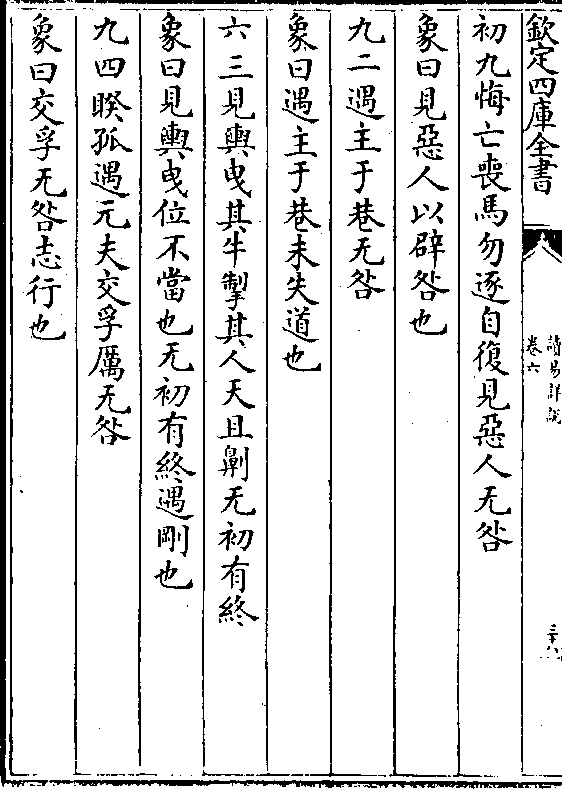 欽定四庫全書
讀易詳説
卷六
三十八
初九悔亡喪馬勿逐自復見惡人无咎
象曰見惡人以辟咎也
九二遇主于巷无咎
象曰遇主于巷未失道也
六三見輿曵其牛掣其人天且劓无初有終
象曰見輿曵位不當也无初有終遇剛也
九四睽孤遇元夫交孚厲无咎
象曰交孚无咎志行也